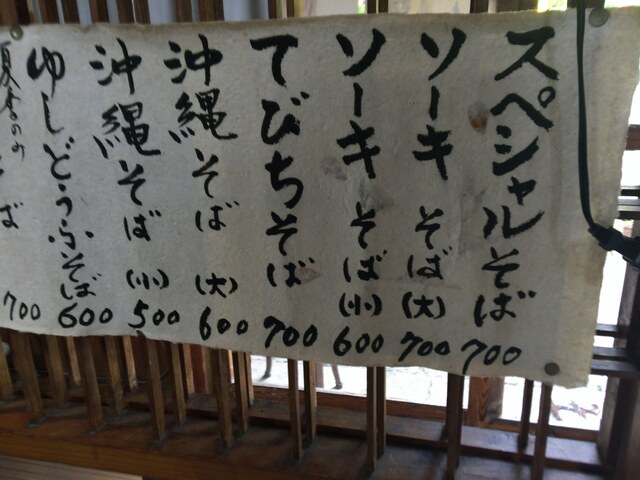 スペシャルそば 700
ソーキそば (大) 700
ソーキそば (小) 600
てびちそば 700
沖縄そば (大) 600
沖縄そば (小) 500
ゆしどうふそば 600
夏季のみ
ば 700